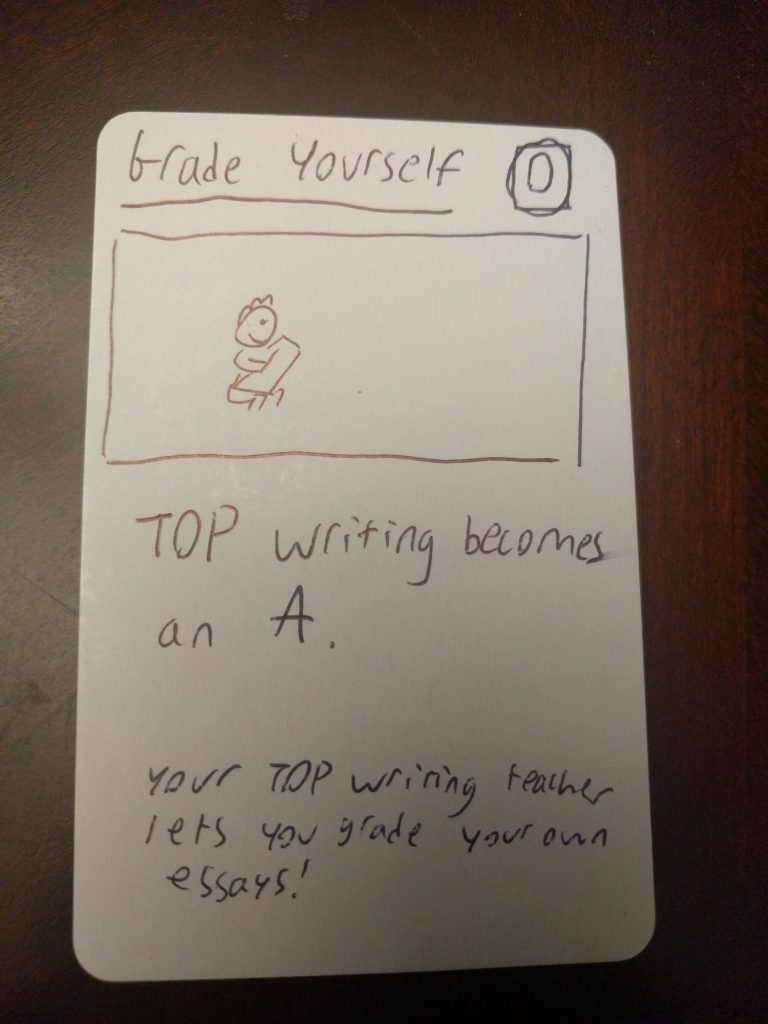 Grade Yourself 0
TOP writing becomes
an A.
your TOP writing teacher
lets you grade your own
essays!